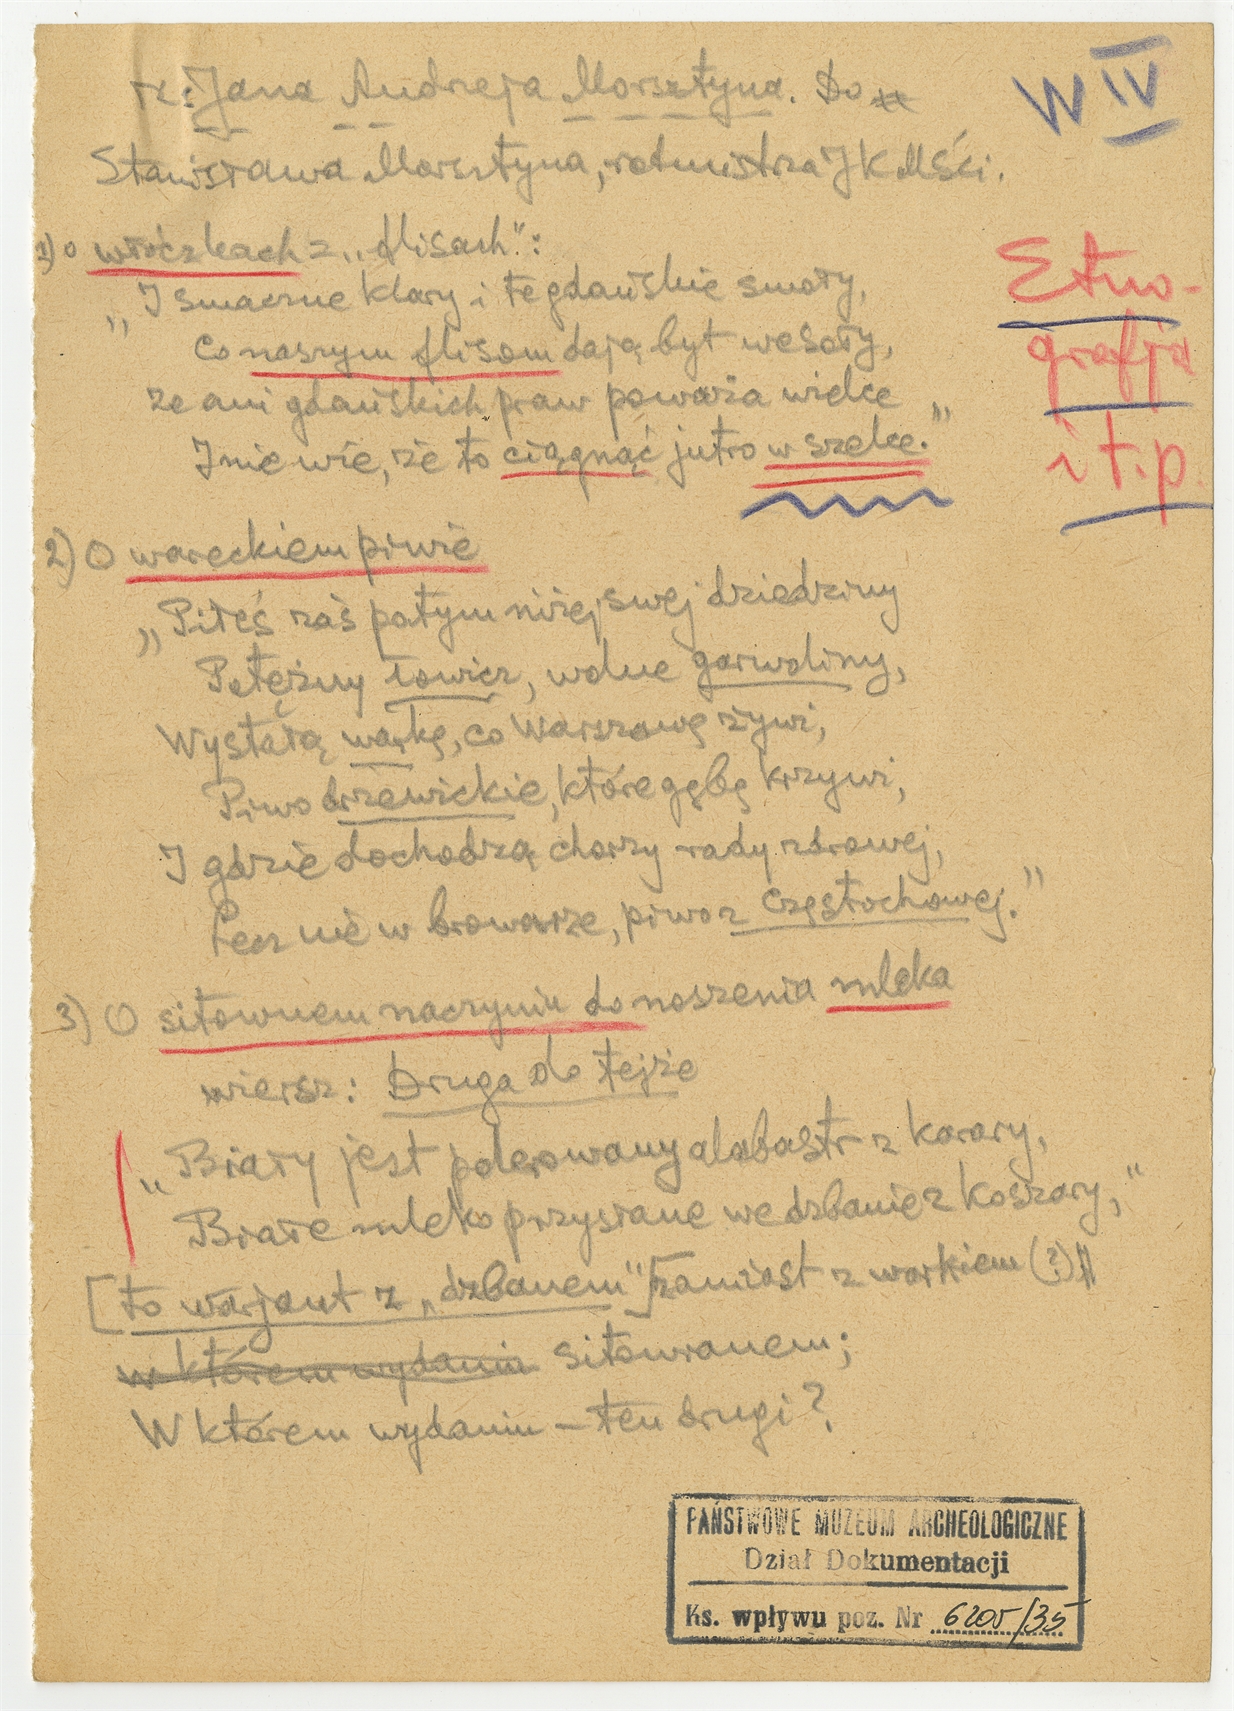 z: Jana Andrzeja Morsztyna. Do
W IV
Stanisława Morsztyna, rotmistrza JKMści.
1) o włóczkach z „flisach":
Etno-
grafja
i t.p.
„I smaczne klary i te gdańskie smoły,
Co naszym flisom dają byt wesoły,
Że ani gdańskich praw poważa wielce
I nie wie, że to ciągnąć jutro w szelce."
2) O wareckiem piwie
„Piłeś zaś potym niżej swej dziedziny
Potężny łowicz, wolne garwoliny,
Wystałą warkę, co Warszawę żywi,
Piwo brzewickie, które gębę krzywi,
I gdzie dochodzą chorzy rady zdrowej,
Lecz nie w browarze, piwo z częstochowej."
3) O sitownem naczyniu do noszenia mleka
wiersz: Druga do tejże
„Biały jest polerowany alabastr z karary,
Białe mleko przysłane we dzbanie z koszary,"
[to warjant z „dzbanem"] zamiast z workiem (?)
w którem wydaniu sitowianem;
W którem wydaniu – ten drugi?
PAŃSTWOWE MUZEUM ARCHEOLOGICZNE
Dział Dokumentacji
Ks. wpływu poz. Nr 6205/35